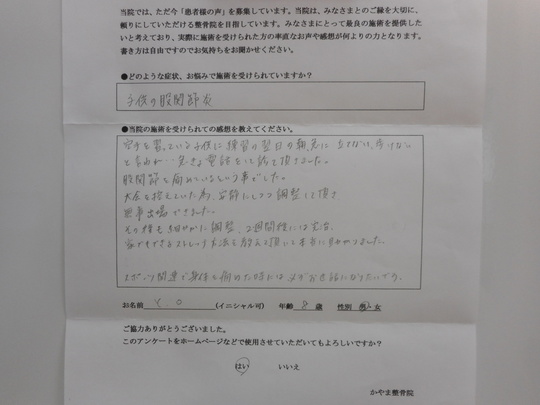 当院では、ただ今「患者様の声」を募集しています。当院は、みなさまとのご縁を大切に、
頼りにしていただける整骨院を目指しています。みなさまにとって最良の施術を提供した
いと考えており、実際に施術を受けられた方の率直なお声や感想が何よりの力となります。
書き方は自由ですのでお気持ちをお聞かせください。
●どのような症状、お悩みで施術を受けられていますか？
子供の股関節炎
●当院の施術を受けられての感想を教えてください。
空手を習っている子供に練習の翌日の朝急に 立てない、歩けない
と言われ…急きょ電話をして診て頂きました。
股関節を痛めているという事でした。
大会を控えていた為、安静にしつつ調整して頂き
無事出場できました。
その後も細やかに調整、2週間程には完治。
家でもできるストレッチ方法も教えて頂いて本当に助かりました。
スポーツ関連で身体を痛めた時にはまたお世話になりたいです。
お名前 Y.O (イニシャル可) 年齢 8 歳 性別 男・女
ご協力ありがとうございました。
このアンケートをホームページなどで使用させていただいてもよろしいですか？
はい いいえ
かやま整骨院